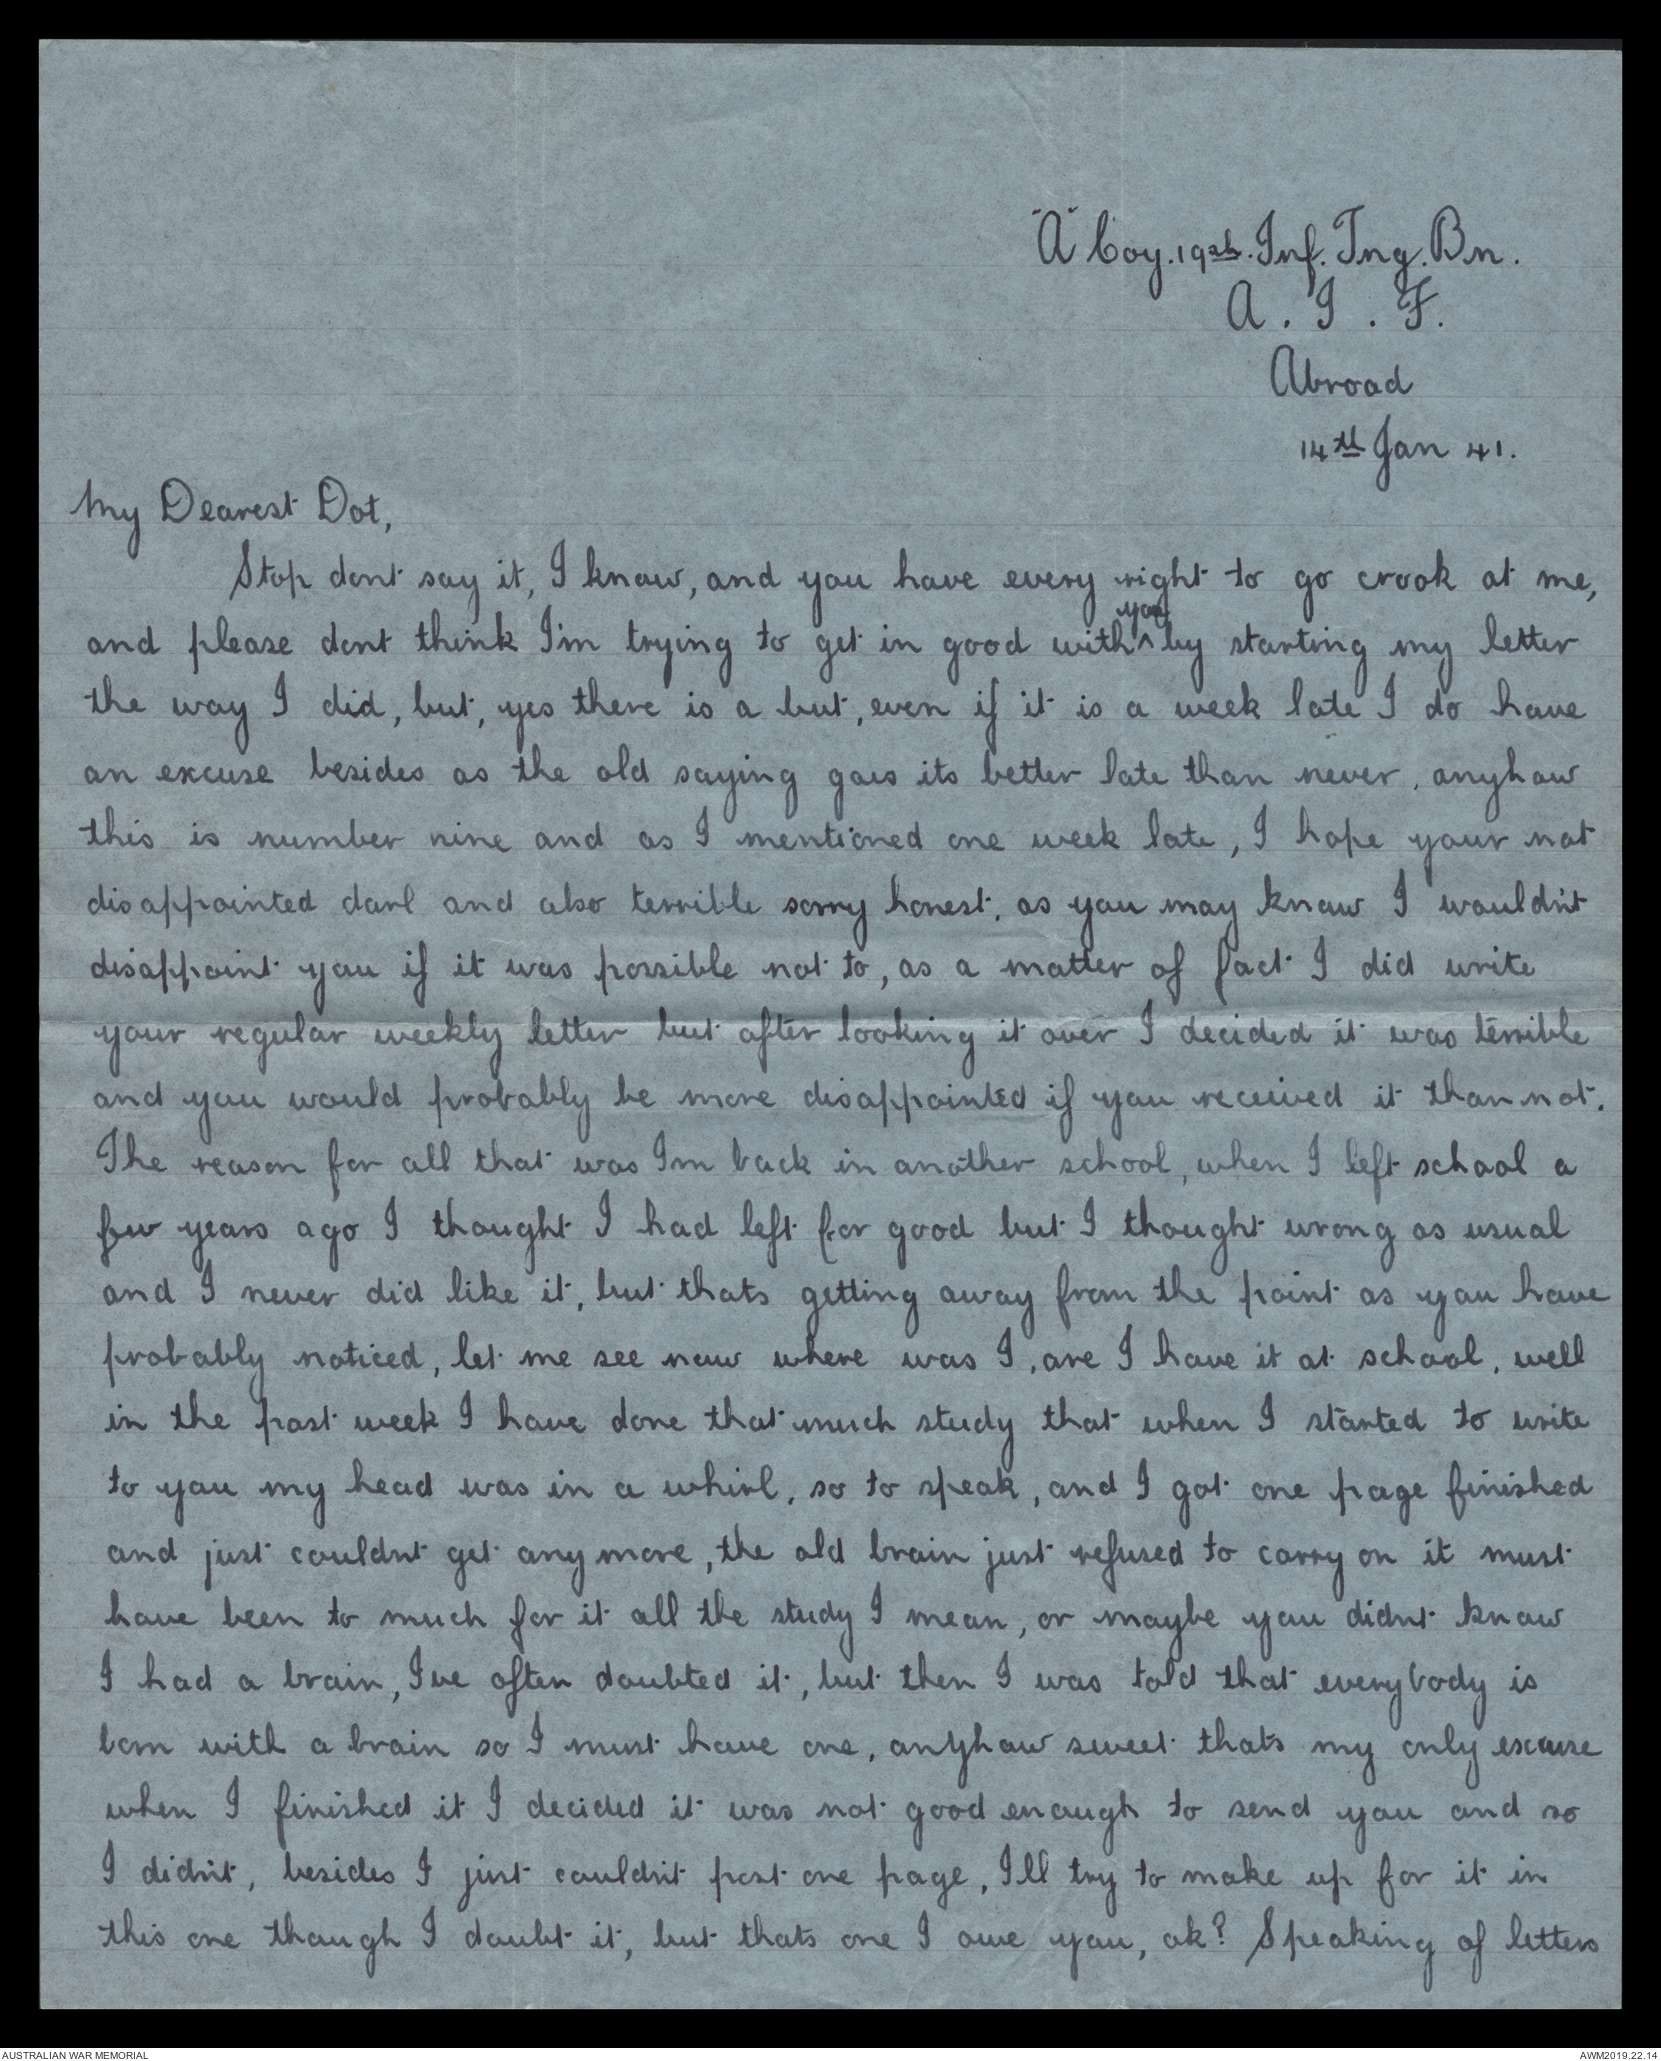 "A" Coy. 19th. Inf. Tng. Bn.
A. I. F.
Abroad
14th Jan 41.
My Dearest Dot,
Stop dont say it, I know, and you have every right to go crook at me,
and please dont think I'm trying to get in good with you by starting my letter
the way I did, but, yes there is a but, even if it is a week late I do have
an excuse besides as the old saying goes its better late than never, anyhow
this is number nine and as I mentioned one week late, I hope your not
disappointed darl and also terrible sorry honest, as you may know I wouldn't
disappoint you if it was possible not to, as a matter of fact I did write
your regular weekly letter but after looking it over I decided it was terrible
and you would probably be more disappointed if you received it than not.
The reason for all that was Im back in another school, when I left school a
few years ago I thought I had left for good but I thought wrong as usual
and I never did like it, but thats getting away from the point as you have
probably noticed, let me see now where was I, are I have it at school, well
in the past week I have done that much study that when I started to write
to you my head was in a whirl, so to speak, and I got one page finished
and just couldnt get any more, the old brain just refused to carry on it must
have been to much for it all the study I mean, or maybe you didnt know
I had a brain, I've often doubted it, but then I was told that everybody is
born with a brain so I must have one, anyhow sweet thats my only excuse
when I finished it I decided it was not good enough to send you and so
I didn't, besides I just couldn't post one page, I'll try to make up for it in
this one though I doubt it, but thats one I owe you, ok? Speaking of letters
AUSTRALIAN WAR MEMORIAL
AWM2019.22.14